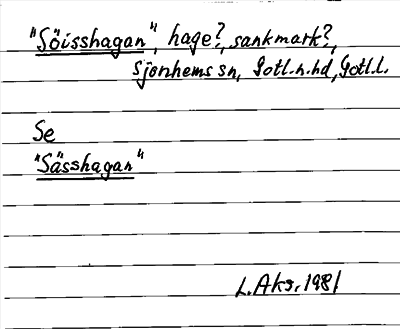 "Söisshagan", hage?, sankmark?,
Sjonhems sn, Gotl. n. hd, Gotl. l.
Se
"Sässhagan"
L. Aks. 1981